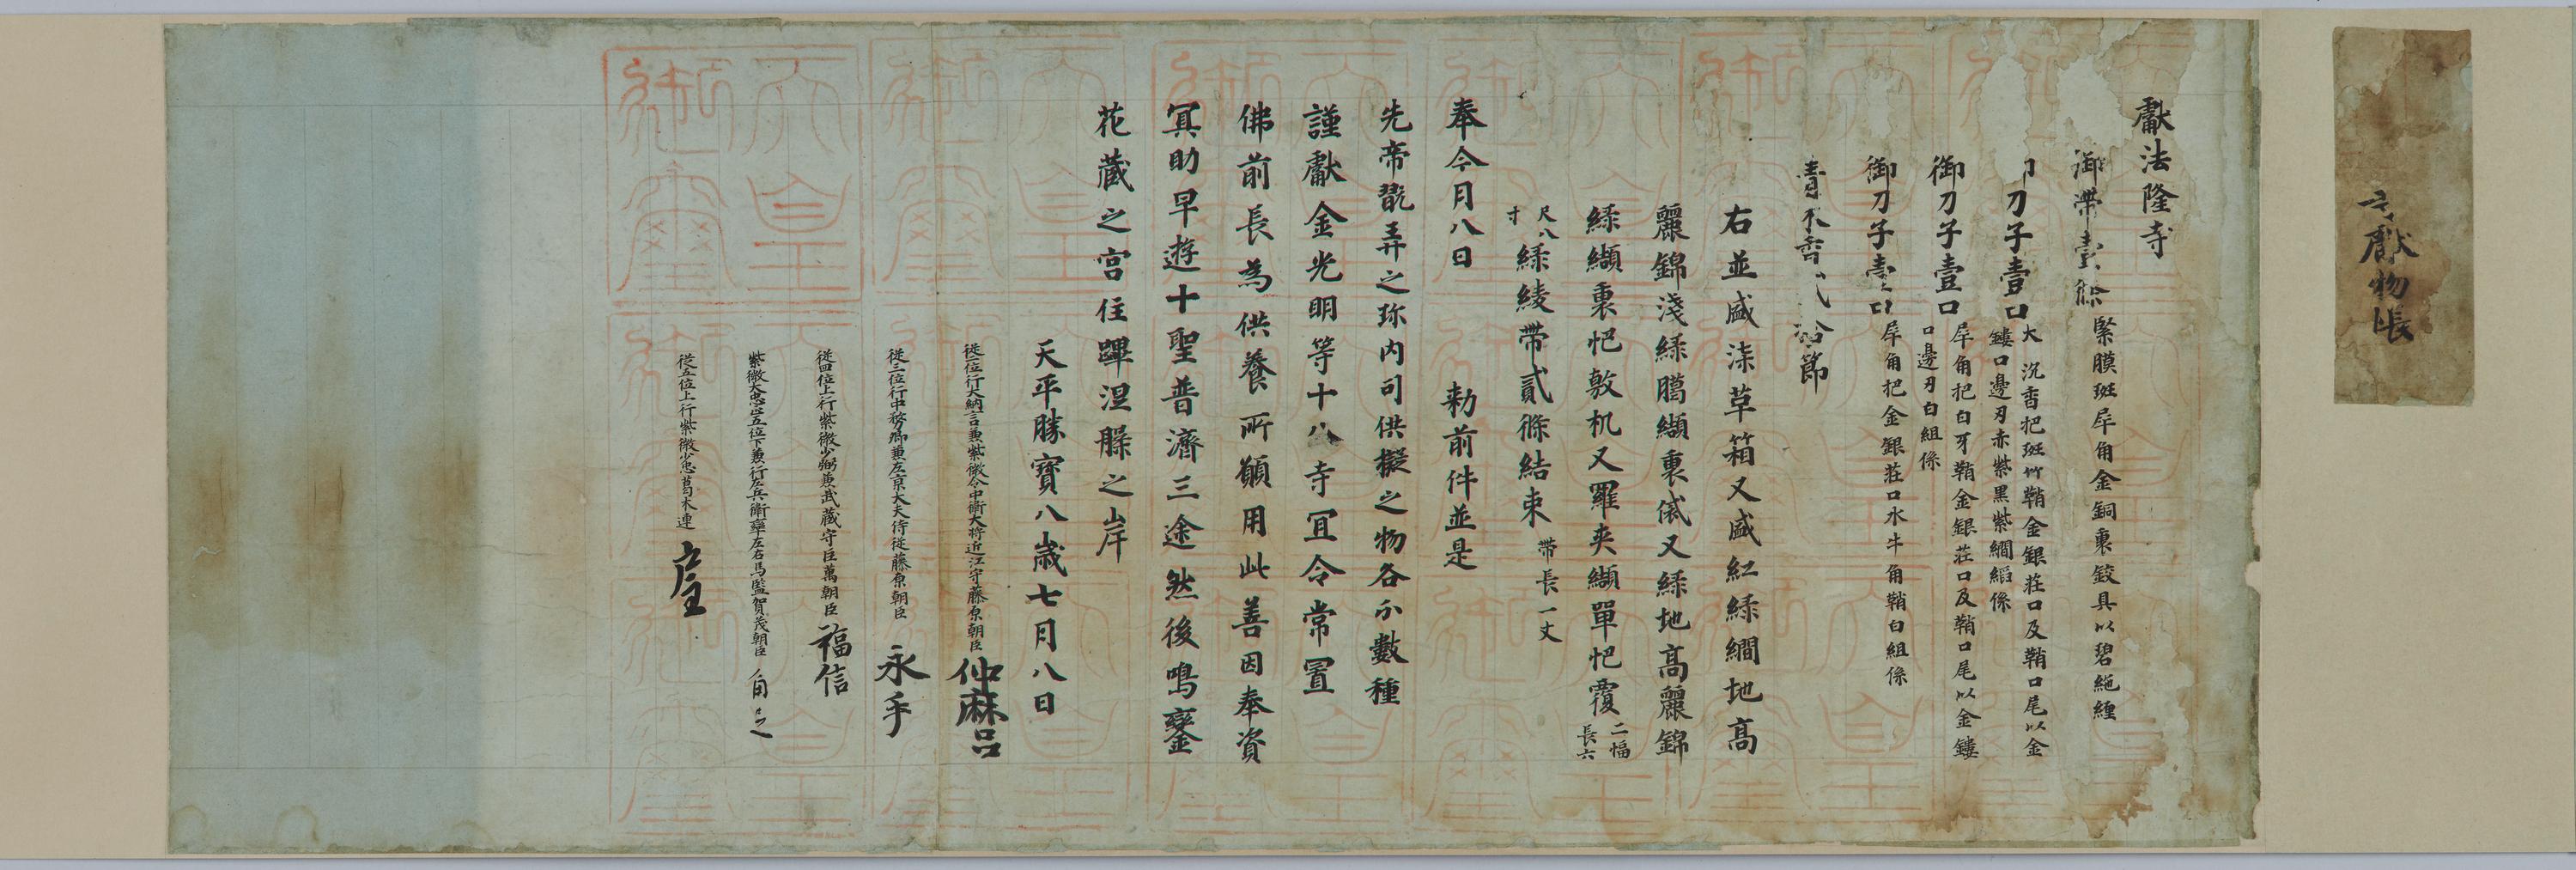 獻物帳
獻法隆寺
御帶壹條 緊膜斑犀角金銅裏鉸具以碧絁纏
刀子壹口 大沉香把斑竹鞘金銀莊口及鞘口尾以金
鏤口邊刃赤紫黑紫繝縚係
御刀子壹口 犀角把白牙鞘金銀莊口及鞘口尾以金鏤
口邊刃白組係
御刀子壹口 犀角把金銀莊口水牛角鞘白組係
青木香貳拾節
右並盛漆草箱又盛紅綠繝地高
麗錦淺綠﨟纈裏帒又綠地高麗錦
綠纈裏帊敷机又羅夾纈單帊覆 二幅
長六
尺八
寸 綠綾帶貳條結束 帶長一丈
奉今月八日 勅前件並是
先帝翫弄之珍内司供擬之物各分數種
謹獻金光明等十八寺宜令常置
佛前長為供養所願用此善因奉資
冥助早遊十聖普濟三途然後鳴鑾
花藏之宮住蹕涅槃之岸
天平勝寶八歲七月八日
從二位行大納言兼紫微令中衛大將近江守藤原朝臣 仲麻呂
從三位行中務卿兼左京大夫侍從藤原朝臣 永手
從四位上行紫微少弼兼武藏守巨萬朝臣 福信
紫微大忠正五位下兼行左兵衛率左右馬監賀茂朝臣 角足
從五位上行紫微少忠葛木連 戶主
天皇御璽